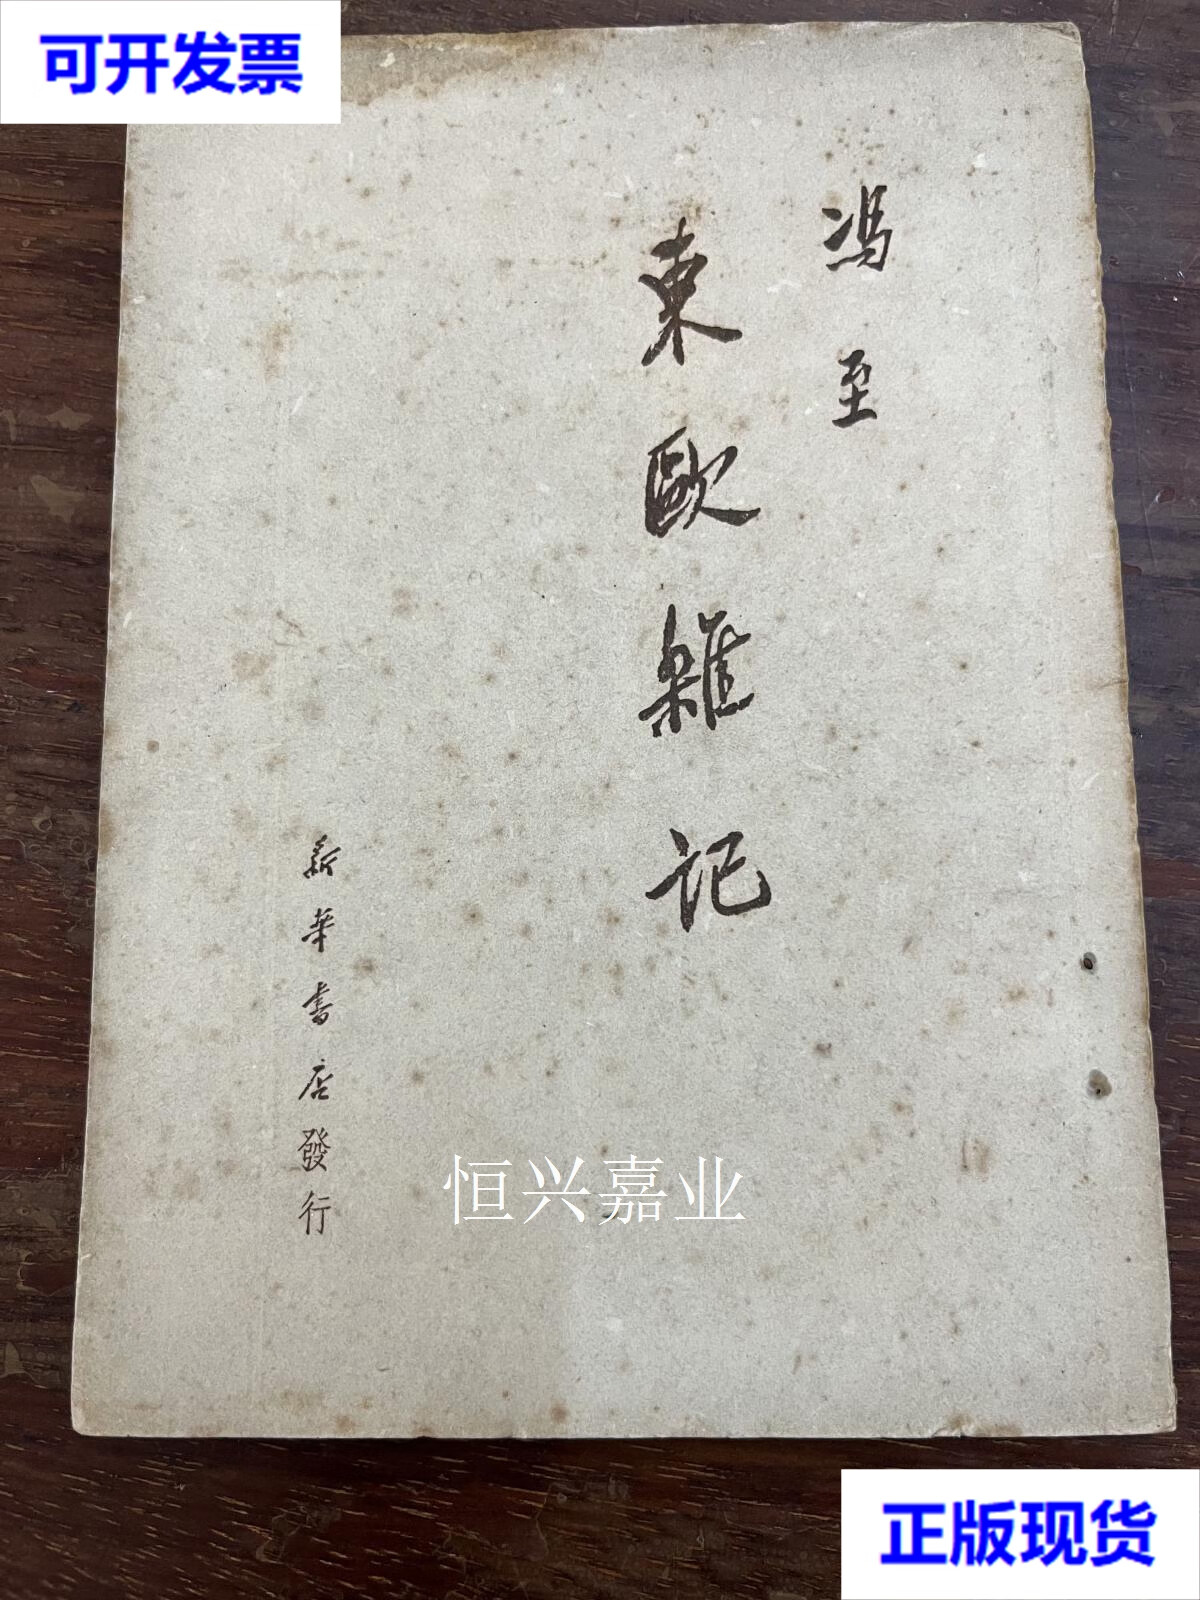 可开发票
冯至
東歐雜记
新華書店發行
恒兴嘉业
正版现货